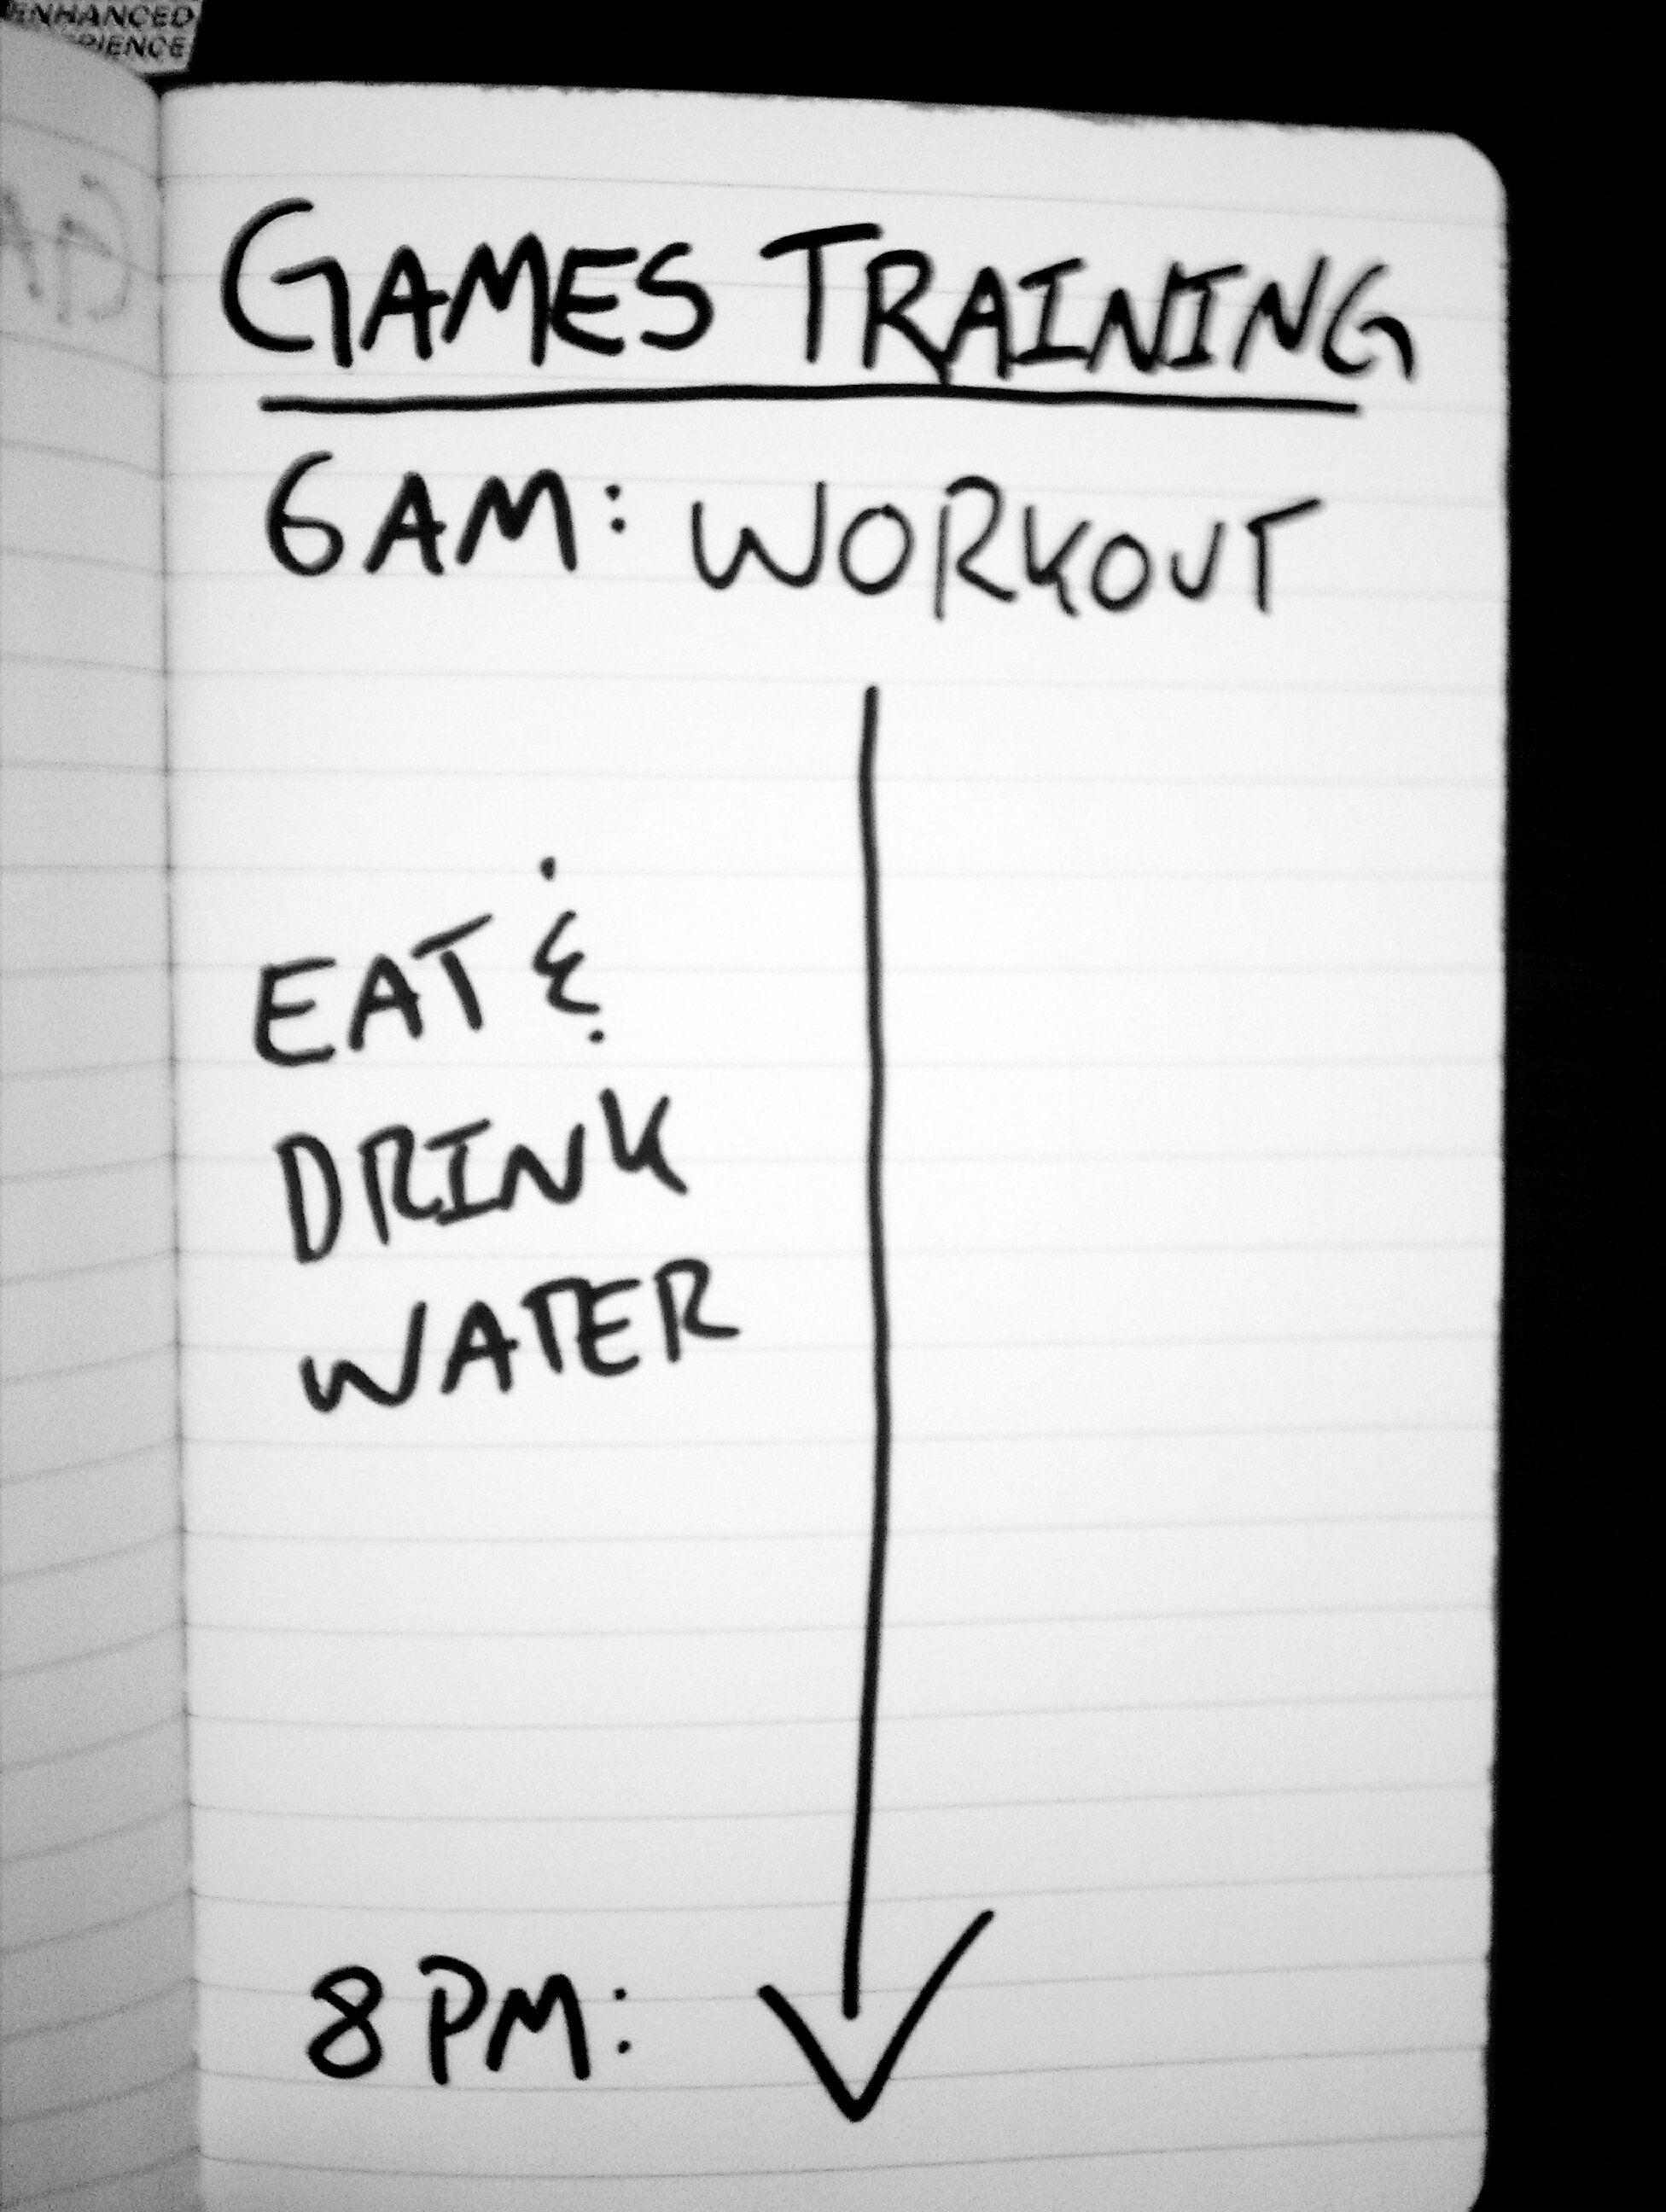 ENHANCED
GAMES TRAINING
6AM: WORKOUT
EAT &
DRINK
WATER
8PM: